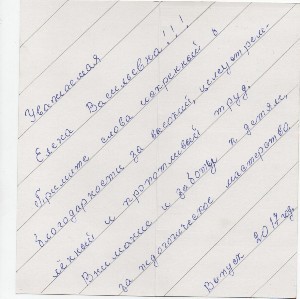 Уважаемая
Елена Васильевна!!!
Примите слова искренный в
благодарности за высокий, целеустрем-
ленный и кропотливый труд.
Внимание и заботу к детям,
за педагогическое мастерство
Выпуск 2017 года